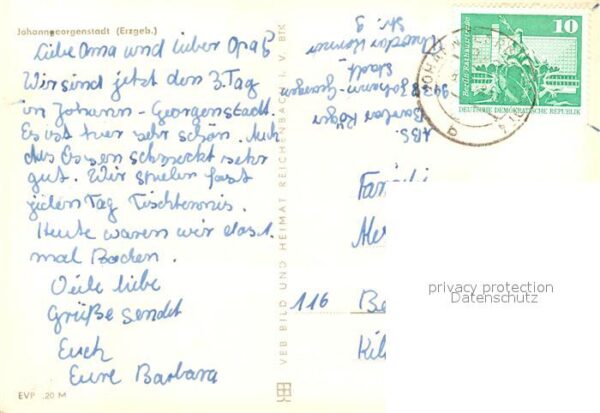 Johanngeorgenstadt (Erzgeb.)
Liebe Oma und lieber Opa!
Wir sind jetzt den 3. Tag
in Johann-Georgenstadt.
Es ist hier sehr schön. Auch
das Essen schmeckt sehr
gut. Wir spielen fast
jeden Tag Tischtennis.
Heute waren wir das 1.
mal Baden.
Viele liebe
Grüße sendet
Euch
Eure Barbara
EVP ,20 M
VEB BILD UND HEIMAT REICHENBACH V. BfK
ABS.
Röger
9438 Johann-Georgen
stadt
Str. 9
10
DEUTSCHE DEMOKRATISCHE REPUBLIK
Famili
116 Be
privacy protection
Datenschutz